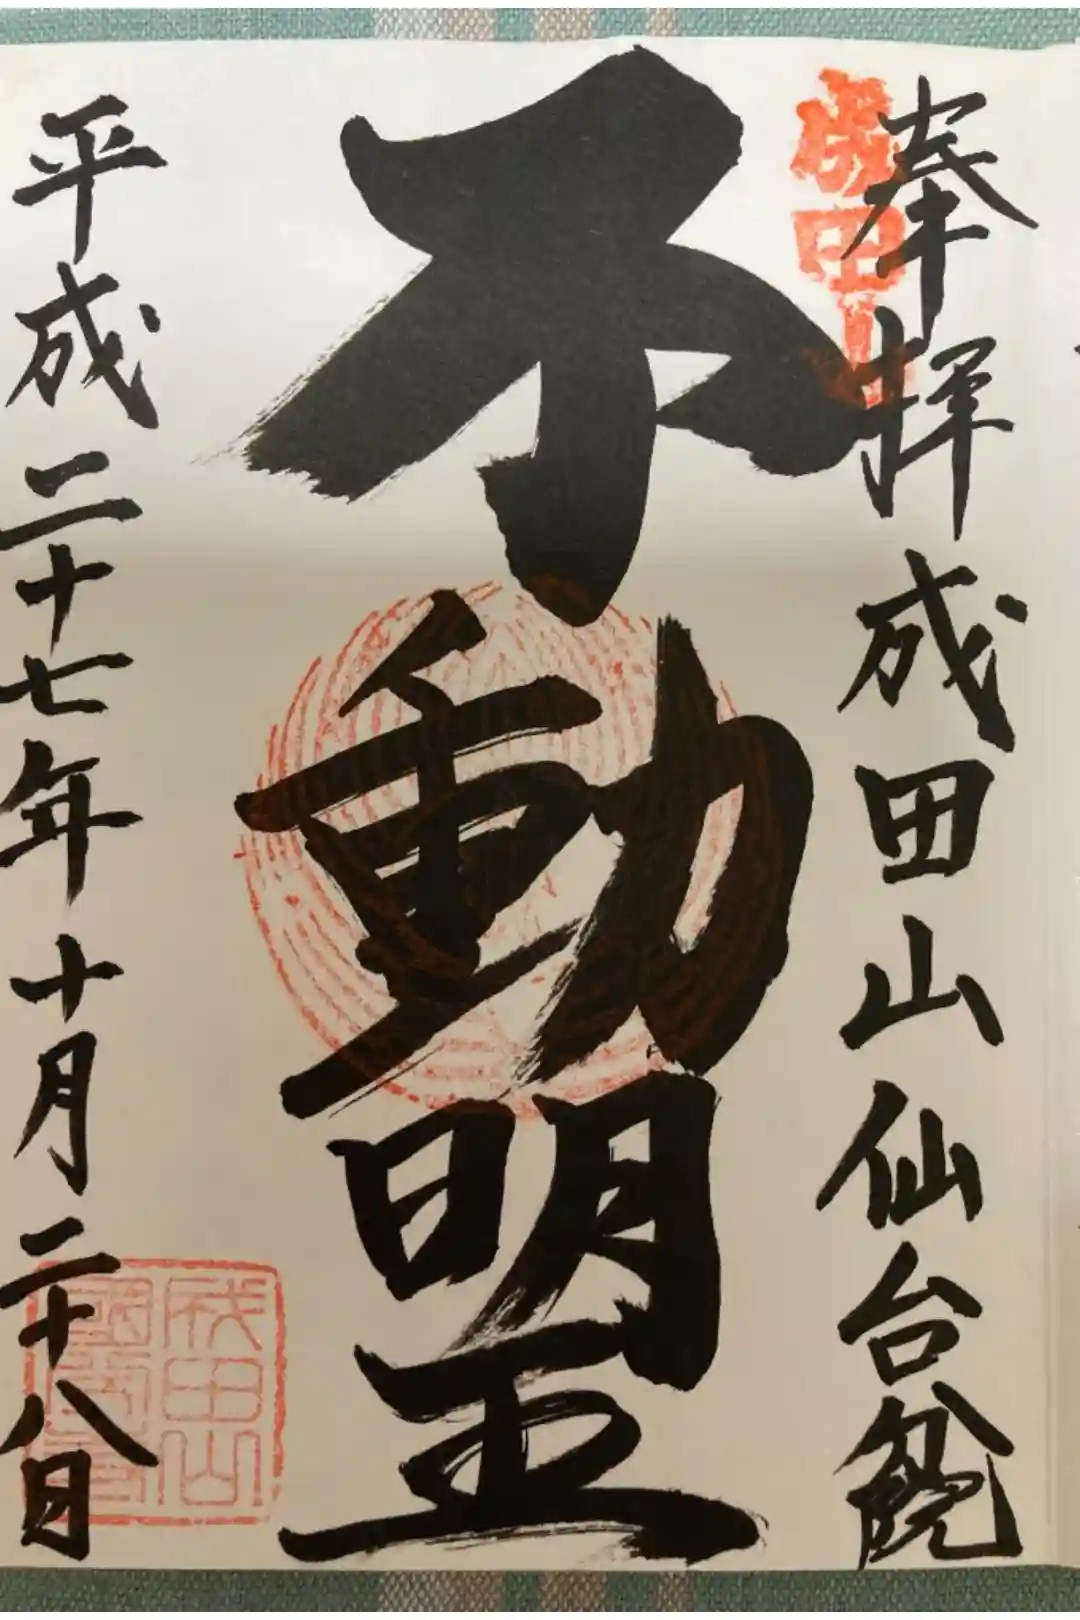 成田山
奉拝 成田山仙台分院
不動明王
平成二十七年十月二十八日
成田山